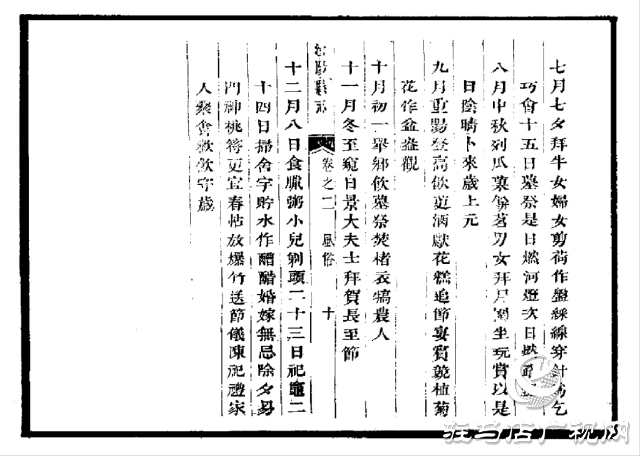 七月七夕拜牛女婦女剪荷作盤綵線穿針為乞
巧會十五日墓祭是日燃河燈次日燃
八月中秋列瓜菓餅茗男女拜月圍坐玩賞以是
日陰晴卜來歲上元
九月重陽登高飲更酒獻花糕追節宴賓競植菊
花作盆盎觀
十月初一舉鄉飲墓祭焚楮衣犒農人
十一月冬至窺日景大夫士拜賀長至節
卷之二 風俗 十
十二月八日食臘粥小兒剃頭二十三日祀竈二
十四日掃舍宇貯水作醋醋婚嫁無忌除夕易
門神桃符更宜春帖放爆竹送節儀陳祀禮家
人聚會歡飲守歲
驻马店广视网